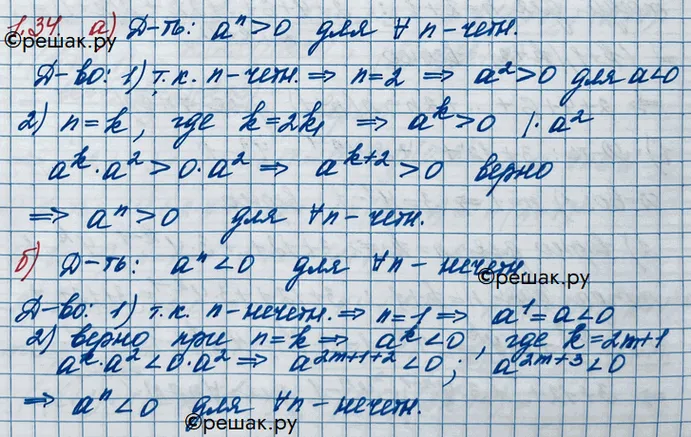 1.34. а) Д-ть: aⁿ>0 для ∀ n-четн.
©решак.ру
Д-во: 1) т.к. n-четн. ⇒ n=2 ⇒ a²>0 для a<0
2) n=k, где k=2k₁ ⇒ aᵏ>0 /·a²
aᵏ·a²>0·a² ⇒ aᵏ⁺²>0 верно
⇒ aⁿ>0 для ∀n-четн.
б) Д-ть: aⁿ<0 для ∀n-нечетн.
©решак.ру
Д-во: 1) т.к. n-нечетн. ⇒ n=1 ⇒ a¹=a<0
2) верно при n=k ⇒ aᵏ<0, где k=2m+1
aᵏ·a²<0·a² ⇒ a²ᵐ⁺¹⁺²<0; a²ᵐ⁺³<0
⇒ aⁿ<0 для ∀n-нечетн.
©решак.ру